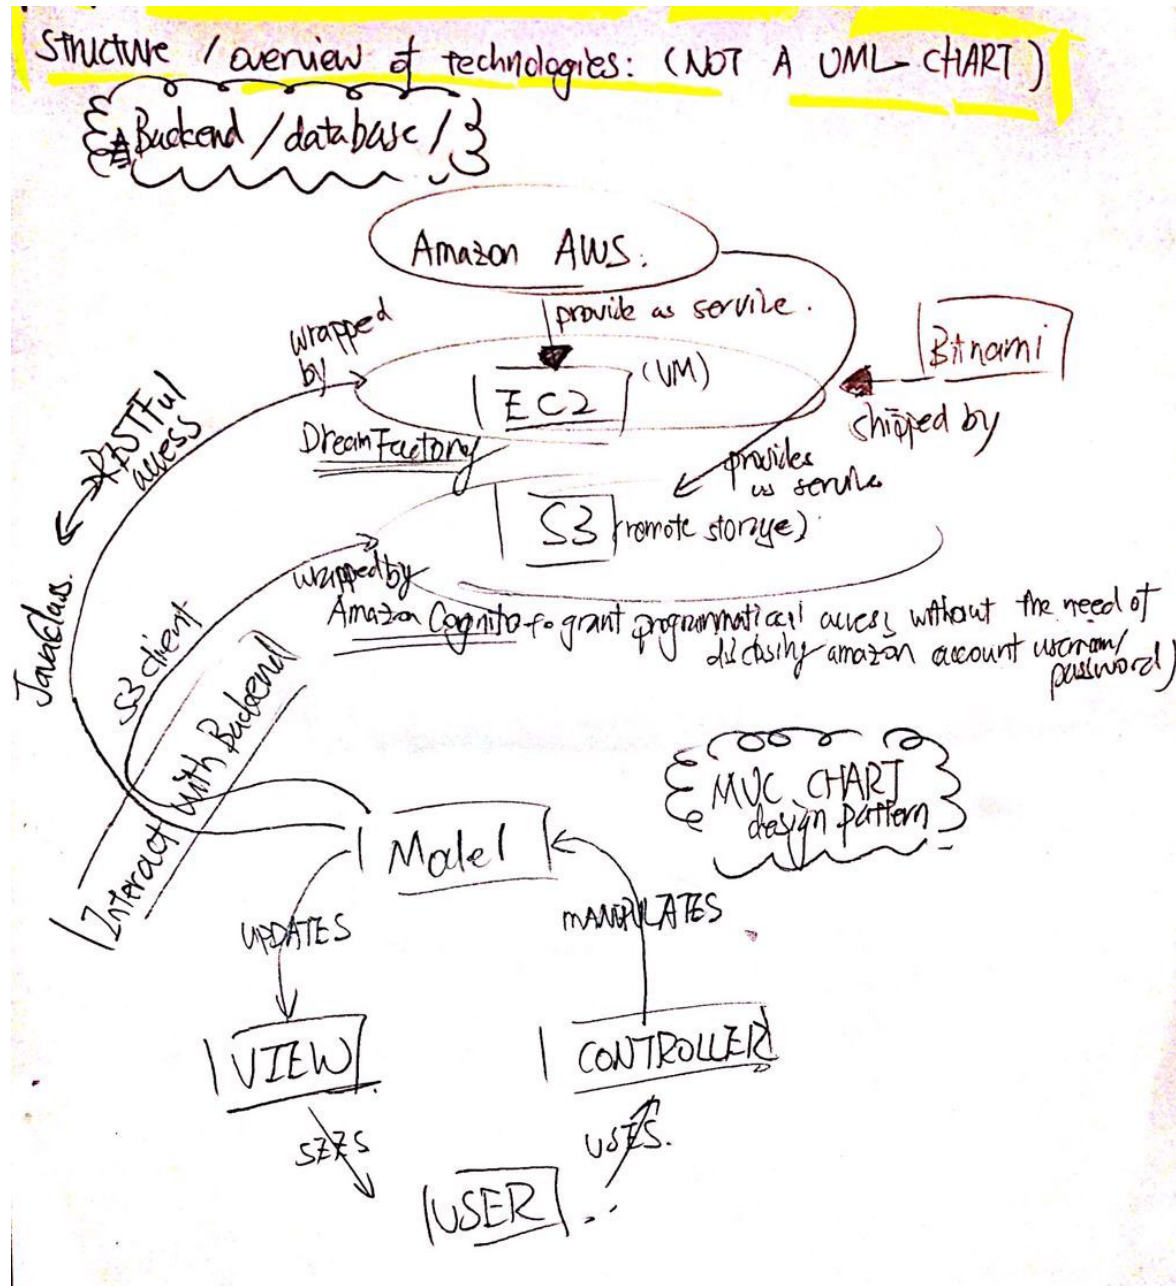 Structure / overview of technologies: (NOT A UML CHART)
Backend / database /
Amazon AWS.
provide as service.
wrapped
by
Bitnami
EC2
(VM)
shipped by
RESTFul
access
DreamFactory
provides
as service
S3
(remote storage)
wrapped by
Amazon Cognito to grant programmatical access without the need of
disclosing amazon account username/
password)
JavaClass.
S3 client
Interact with Backend
MVC CHART
design pattern
Model
UPDATES
MANIPULATES
VIEW
CONTROLLER
SEES
USES.
USER